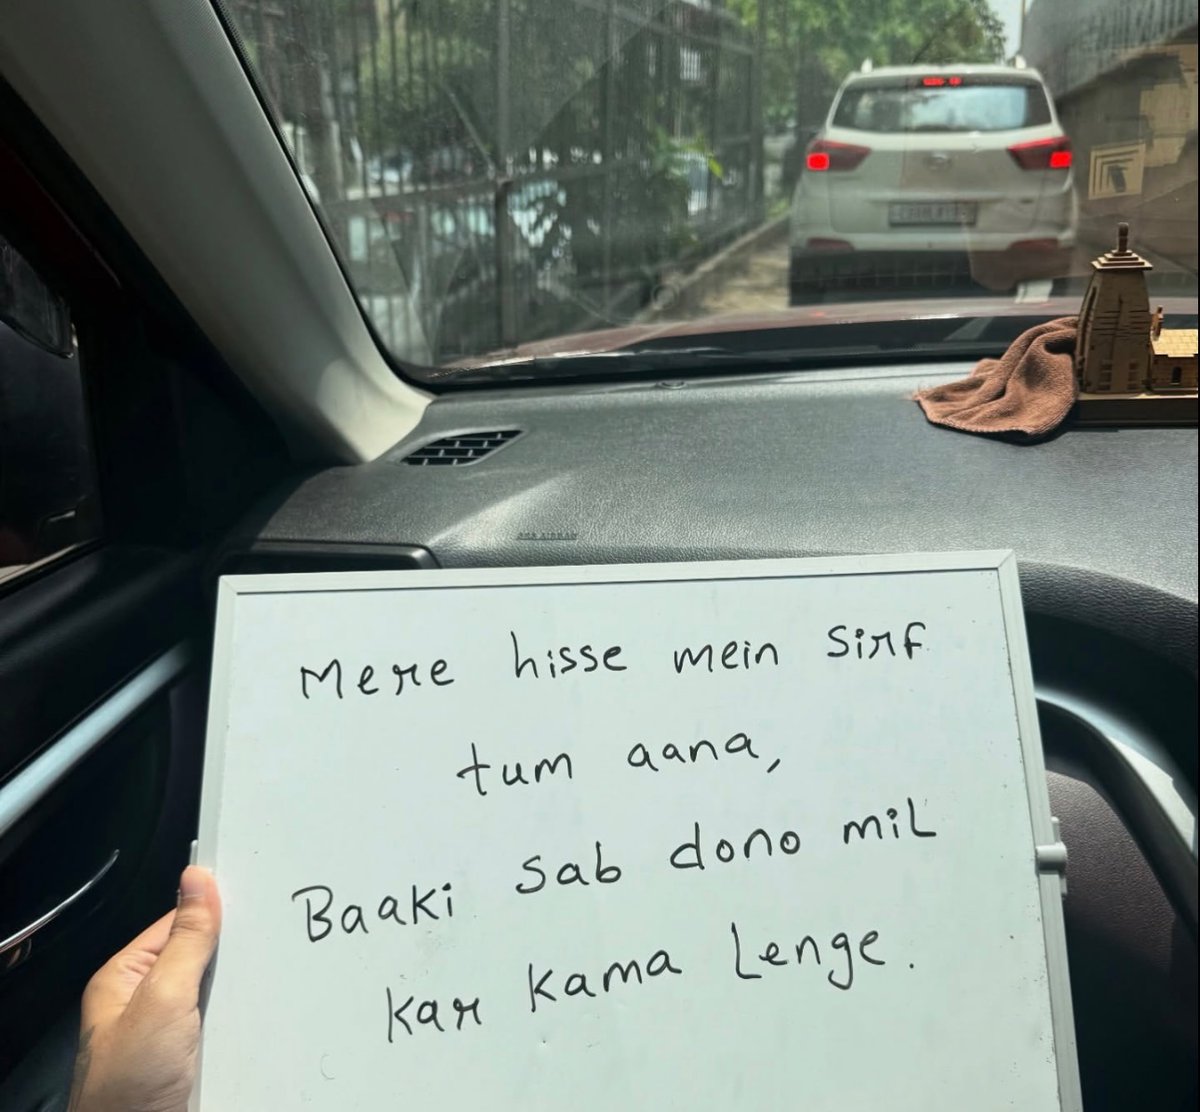 Mere hisse mein sirf
tum aana,
Baaki sab dono mil
kar kama Lenge.